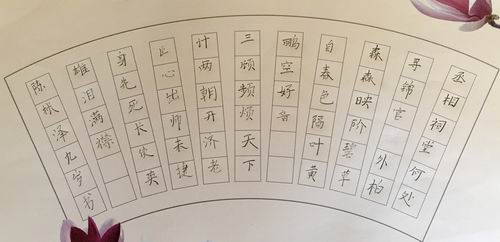 丞相祠堂何处
寻锦官外柏
森森映阶碧草
自春色隔叶黄
鹂空好音
三顾频烦天下
计两朝开济老
臣心出师未捷
身先死长使英
雄泪满襟
陈林泽九岁书